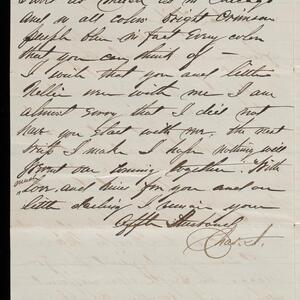 in Chicago
and in all colors bright Crimson
purple blue in fact every color
that you can think of —
I wish that you and little
Nelie were with me I am
almost sorry that I did not
have you start with me. The next
trip I make I hope nothing will
prevent our coming together. With
much
love and kises for you and our
little darling I remain your
Afftn Husband
Chas. A.